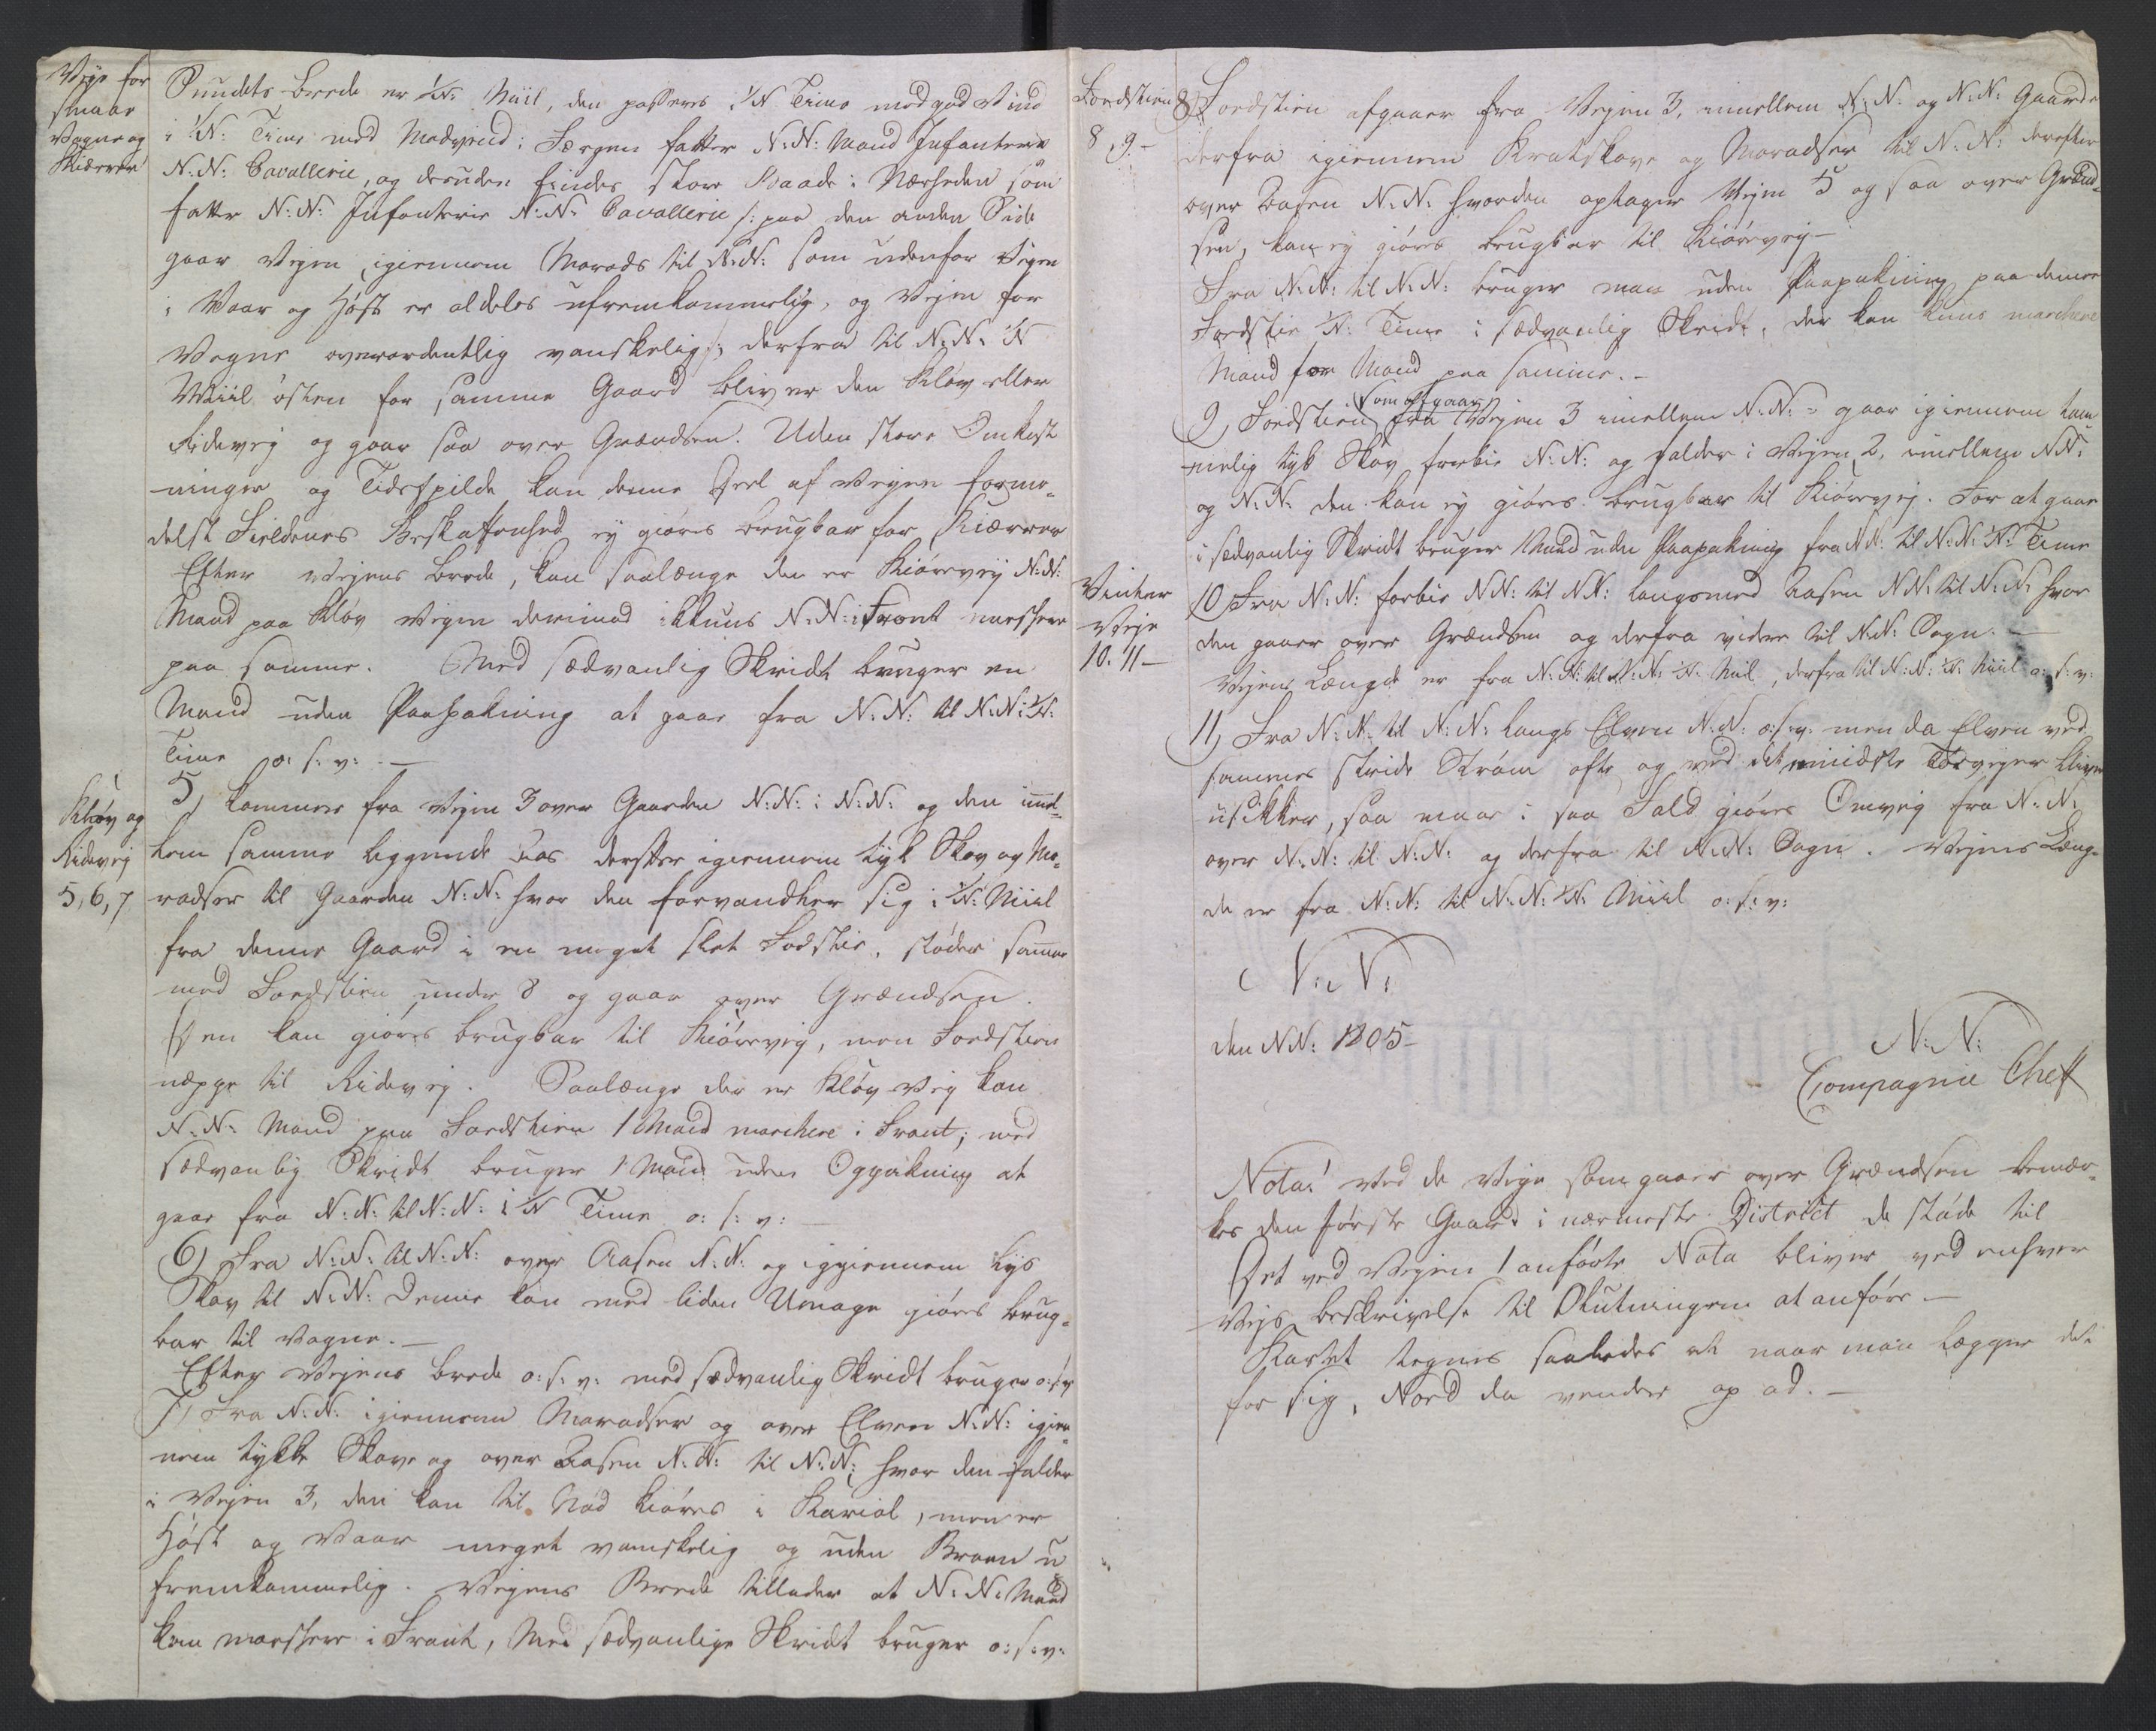 Veje for
smaae
Vogne og
Kiærrer
Sundets Brede er 1/N: Miil, den passeres 1/N Time med god Vind
i 1/N: Time med Modvind; Færgen fatter N:N: Mand Infanterie
N:N: Cavallerie, og desuden findes store Baade i Nærheden som
fatte N:N: Infanterie N:N: Cavallerie /: paa den anden Side
gaar Vejen igiennem Morads til N:N: som udenfor Vejen
i Vaar og Høst er aldeles ufremkommelig, og Vejen for
Vogne overordentlig vanskelig :/ derfra til N:N: 1/N
Miil østen for samme Gaard bliver den Kløv eller
Ridevej og gaar saa over Grændsen. Uden store Omkost
ninger og Tidsspilde kan denne Deel af Vejen forme-
delst Fieldenes Beskaffenhed ej giøres brugbar for Kiærrer
Efter Vejens Brede, kan saalænge den er Kiørevej N:N:
Mand paa Kløv Vejen derimod ikkuns N:N: i Front marschere
paa samme. Med sædvanlig Skridt bruger en
Mand uden Paapakning at gaae fra N:N: til N:N: 1/N:
Time o: s: v: —
Kløv og
Ridevej
5, 6, 7
5) kommer fra Vejen 3 over Gaarden N:N: i N:N: og den imel-
lem samme liggende Aas derefter igiennem tyk Skov og Mo-
radser til Gaarden N:N: hvor den forvandler sig i 1/N: Miil
fra denne Gaard i en meget slet Fodstie, støder samme
med Foedstien under 8 og gaar over Grændsen.
Den kan giøres brugbar til Kiørevej, men Foedstien
neppe til Ridevej. Saalænge der er Kløv Vej kan
N:N: Mand paa Foedstien 1 Mand marchere i Front; med
sædvanlig Skridt bruger 1 Mand uden Oppakning at
gaae fra N:N: til N:N: 1/N Time o: s: v: —
6) Fra N:N: til N:N: over Aasen N:N: og igiennem lys
Skov til N:N: Denne kan med liden Umage giøres brug-
bar til Vogne. —
Efter Vejens Brede o: s: v: med sædvanlig Skridt bruger o: s: v
7) Fra N:N: igiennem Moradser og over Elven N:N: igien-
nem tykke Skove og over Aasen N:N: til N:N: hvor den falder
i Vejen 3, den kan til Nød kiøres i Kariol, men er
Høst og Vaar meget vanskelig og uden Broen u
fremkommelig. Vejens Brede tillader at N:N: Mand
kan marschere i Front, Med sædvanlige Skridt bruger o: s: v:
Foedstien
8, 9 —
8) Foedstien afgaaer fra Vejen 3, imellem N:N: og N:N: Gaarde
derfra igiennem Kratskove og Moradser til N:N: derefter
over Aasen N:N: hvorden optager Vejen 5 og saa over Grænd-
sen, kan ej giøres brugbar til Kiørevej —
Fra N:N: til N:N: bruger man uden Paapakning paa denne
Foedstie 1/N: Time i sædvanlig Skridt, der kan kuns marchere
Mand for Mand paa samme. —
som afgaaer
9) Foedstien fra Vejen 3 imellem N:N: = gaar igiennem tem
melig tyk Skov forbie N:N: og falder i Vejen 2, imellem NN:
og N:N: den kan ej giøres brugbar til Kiørevej. For at gaae
i sædvanlig Skridt bruger 1 Mand uden Paapakning fra N:N: til N:N: 1/N: Time
Vinter
Veje
10. 11 —
10 Fra N:N: forbie NN: til NN: langsmed Aasen NN: til N:N: hvor
den gaaer over Grændsen og derfra videre til N:N: Sogn. —
Vejens Længde er fra N:N: til N:N: 1/N: Miil, derfra til N:N: 1/N: Miil o: s: v:
11) Fra N:N: til N:N: langs Elven N:N: o: s: v: men da Elven ved
sammes stride Strøm ofte og ved det mindste Tøevejer bliver
usikker, saa maae i saa Fald giøres Omvej fra N:N:
over N:N: til N:N: og derfra til N:N: Sogn. Vejens Læng-
de er fra N:N: til N:N: 1/N: Miil o: s: v:
N: N:
den NN: 1805 —
N: N:
Compagnie Cheff
Nota! Ved de Veje som gaaer over Grændsen bemær-
kes den første Gaard i nærmeste District de støde til
Det ved Vejen 1 anførte Nota bliver ved enhver
Vejs beskrivelse til Slutningen at anføre —
Kartet tegnes saaledes at naar man lægger det
for sig, Nord da vender op ad. —